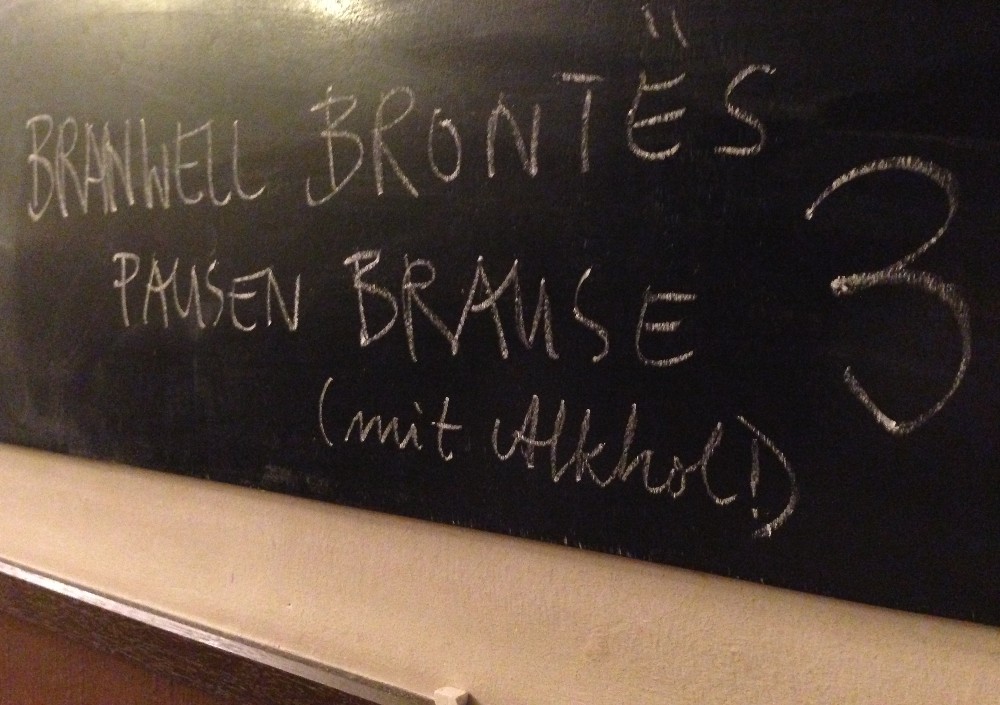 BRANWELL BRONTËS
PAUSEN BRAUSE 3
(mit Alkhol!)